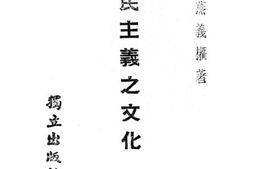 燕義權著
民主義之文化
獨立出版